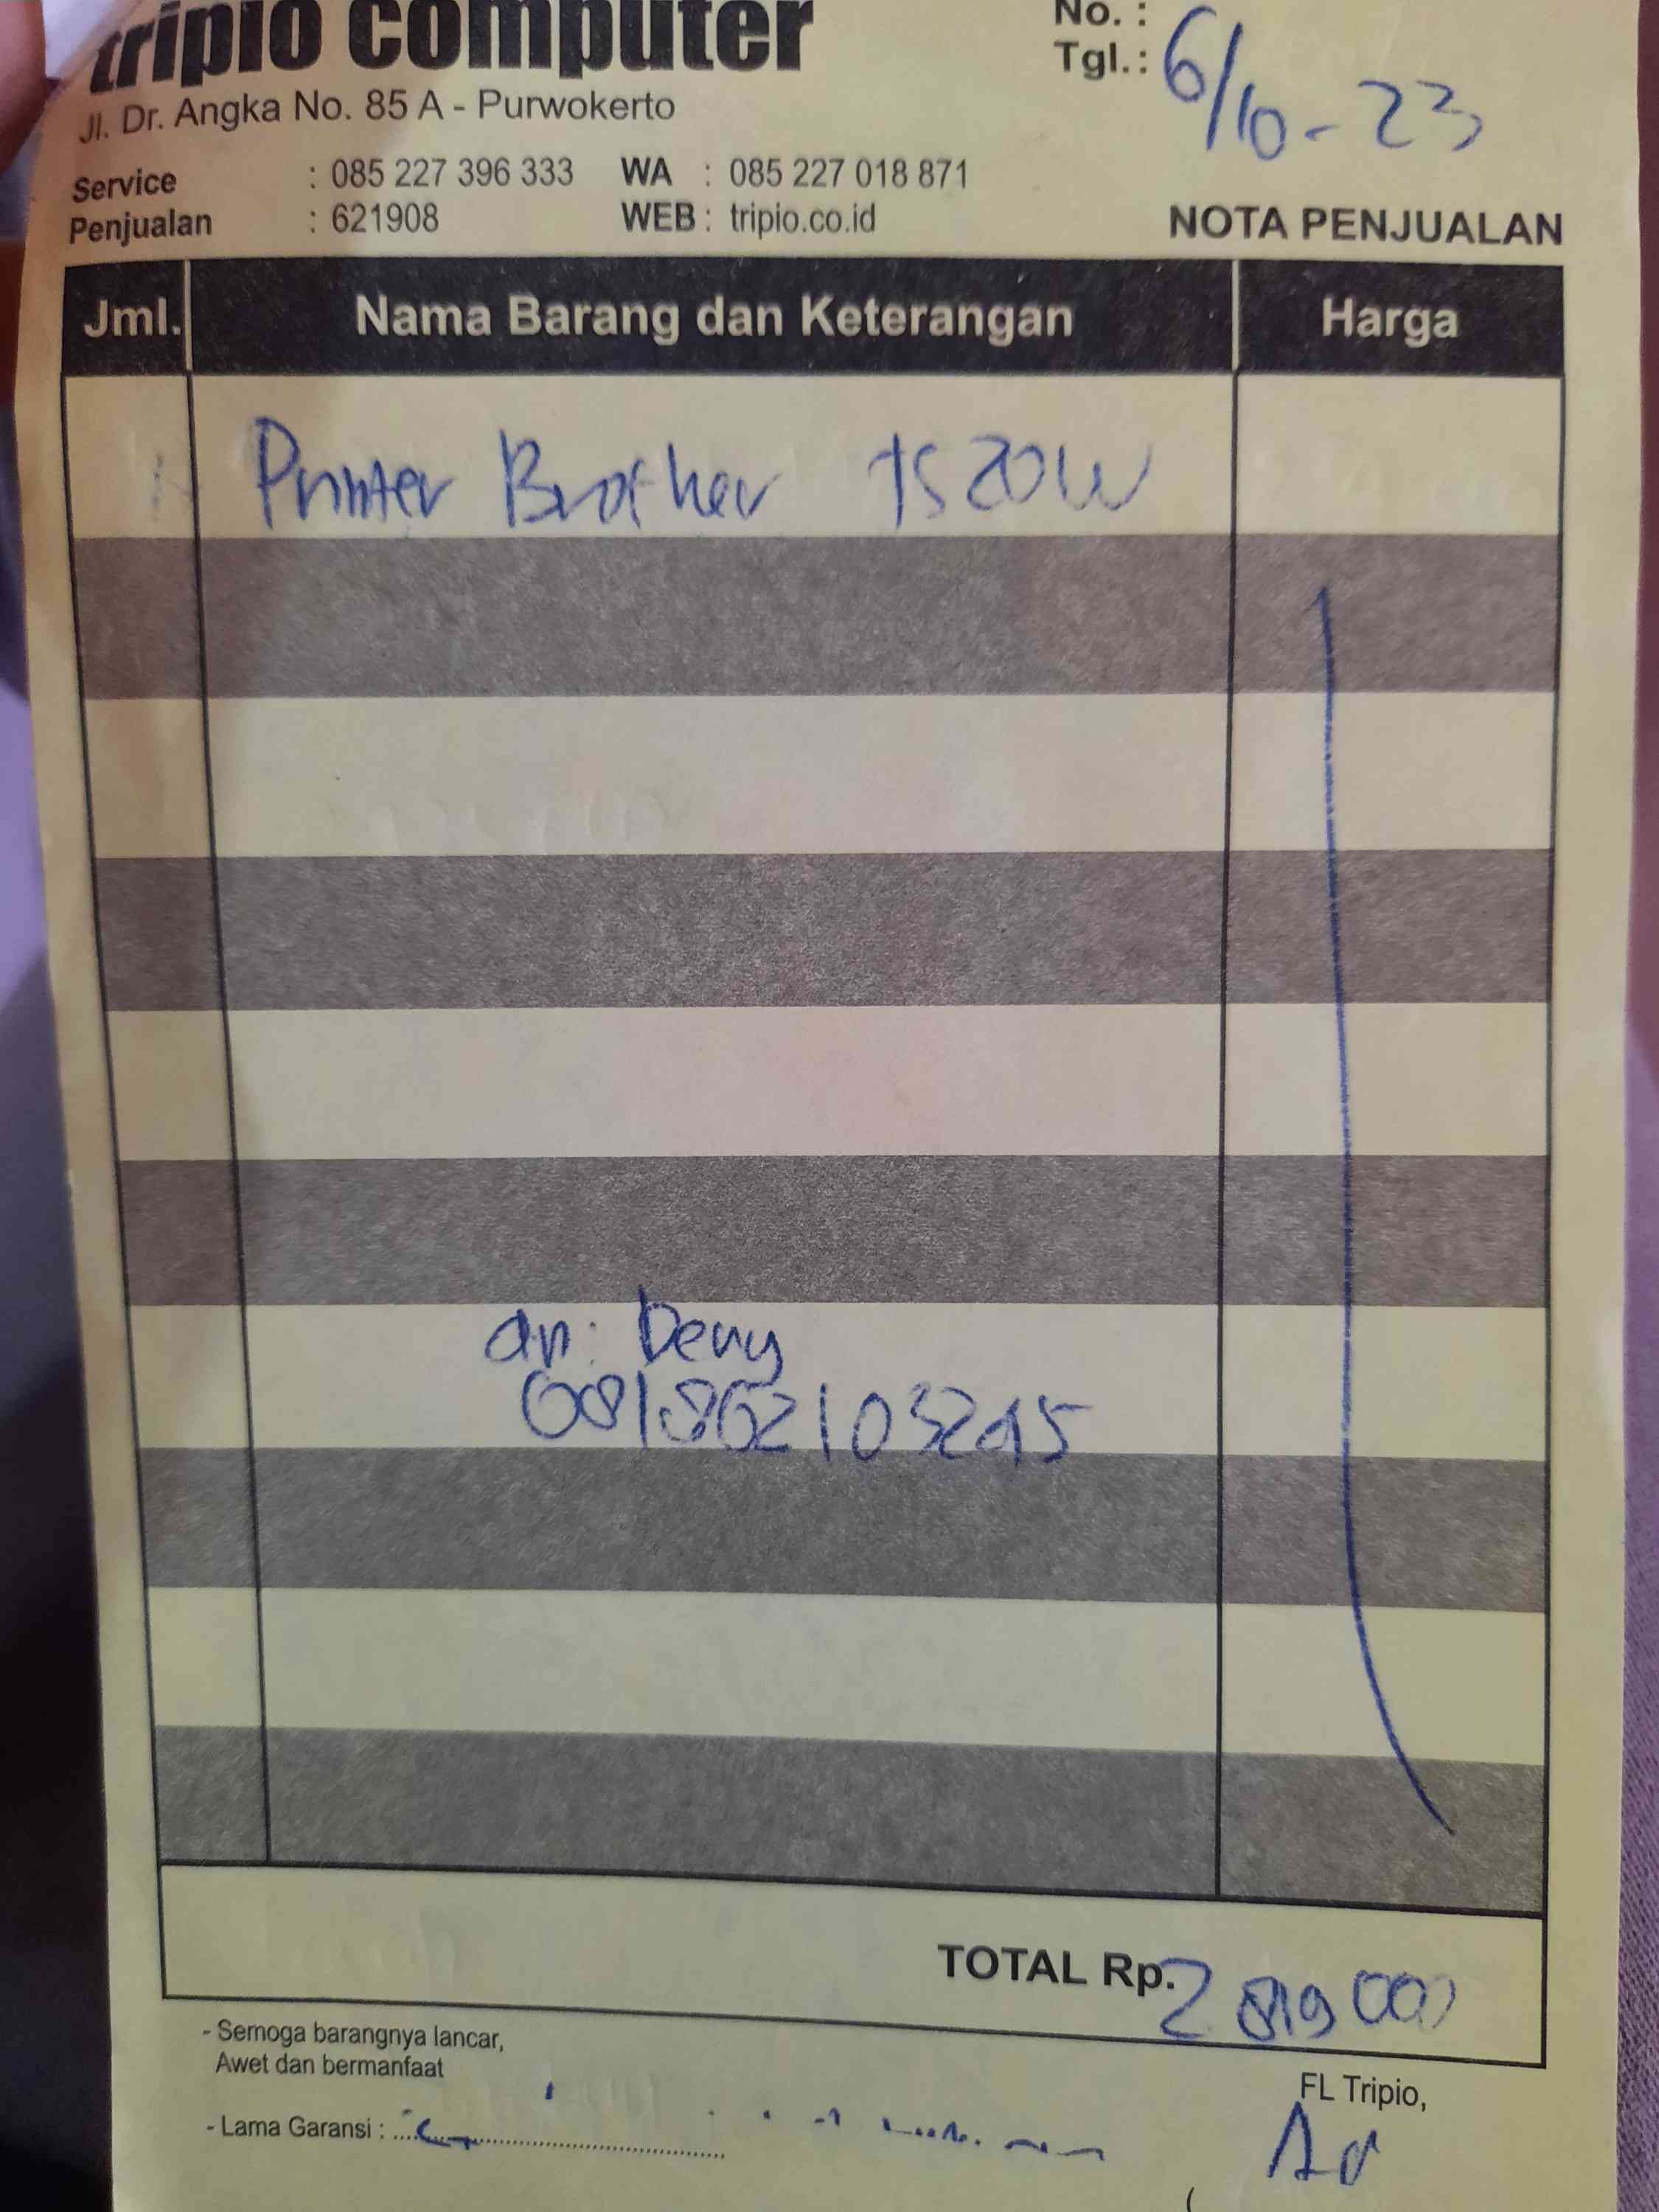 tripio computer
No. :
Tgl. : 6/10-23
Jl. Dr. Angka No. 85 A - Purwokerto
Service : 085 227 396 333 WA : 085 227 018 871
Penjualan : 621908 WEB : tripio.co.id
NOTA PENJUALAN
Jml. Nama Barang dan Keterangan Harga
1 Printer Brother T520W
an: Deny
TOTAL Rp. 2 819 000
- Semoga barangnya lancar,
Awet dan bermanfaat
FL Tripio,
- Lama Garansi :